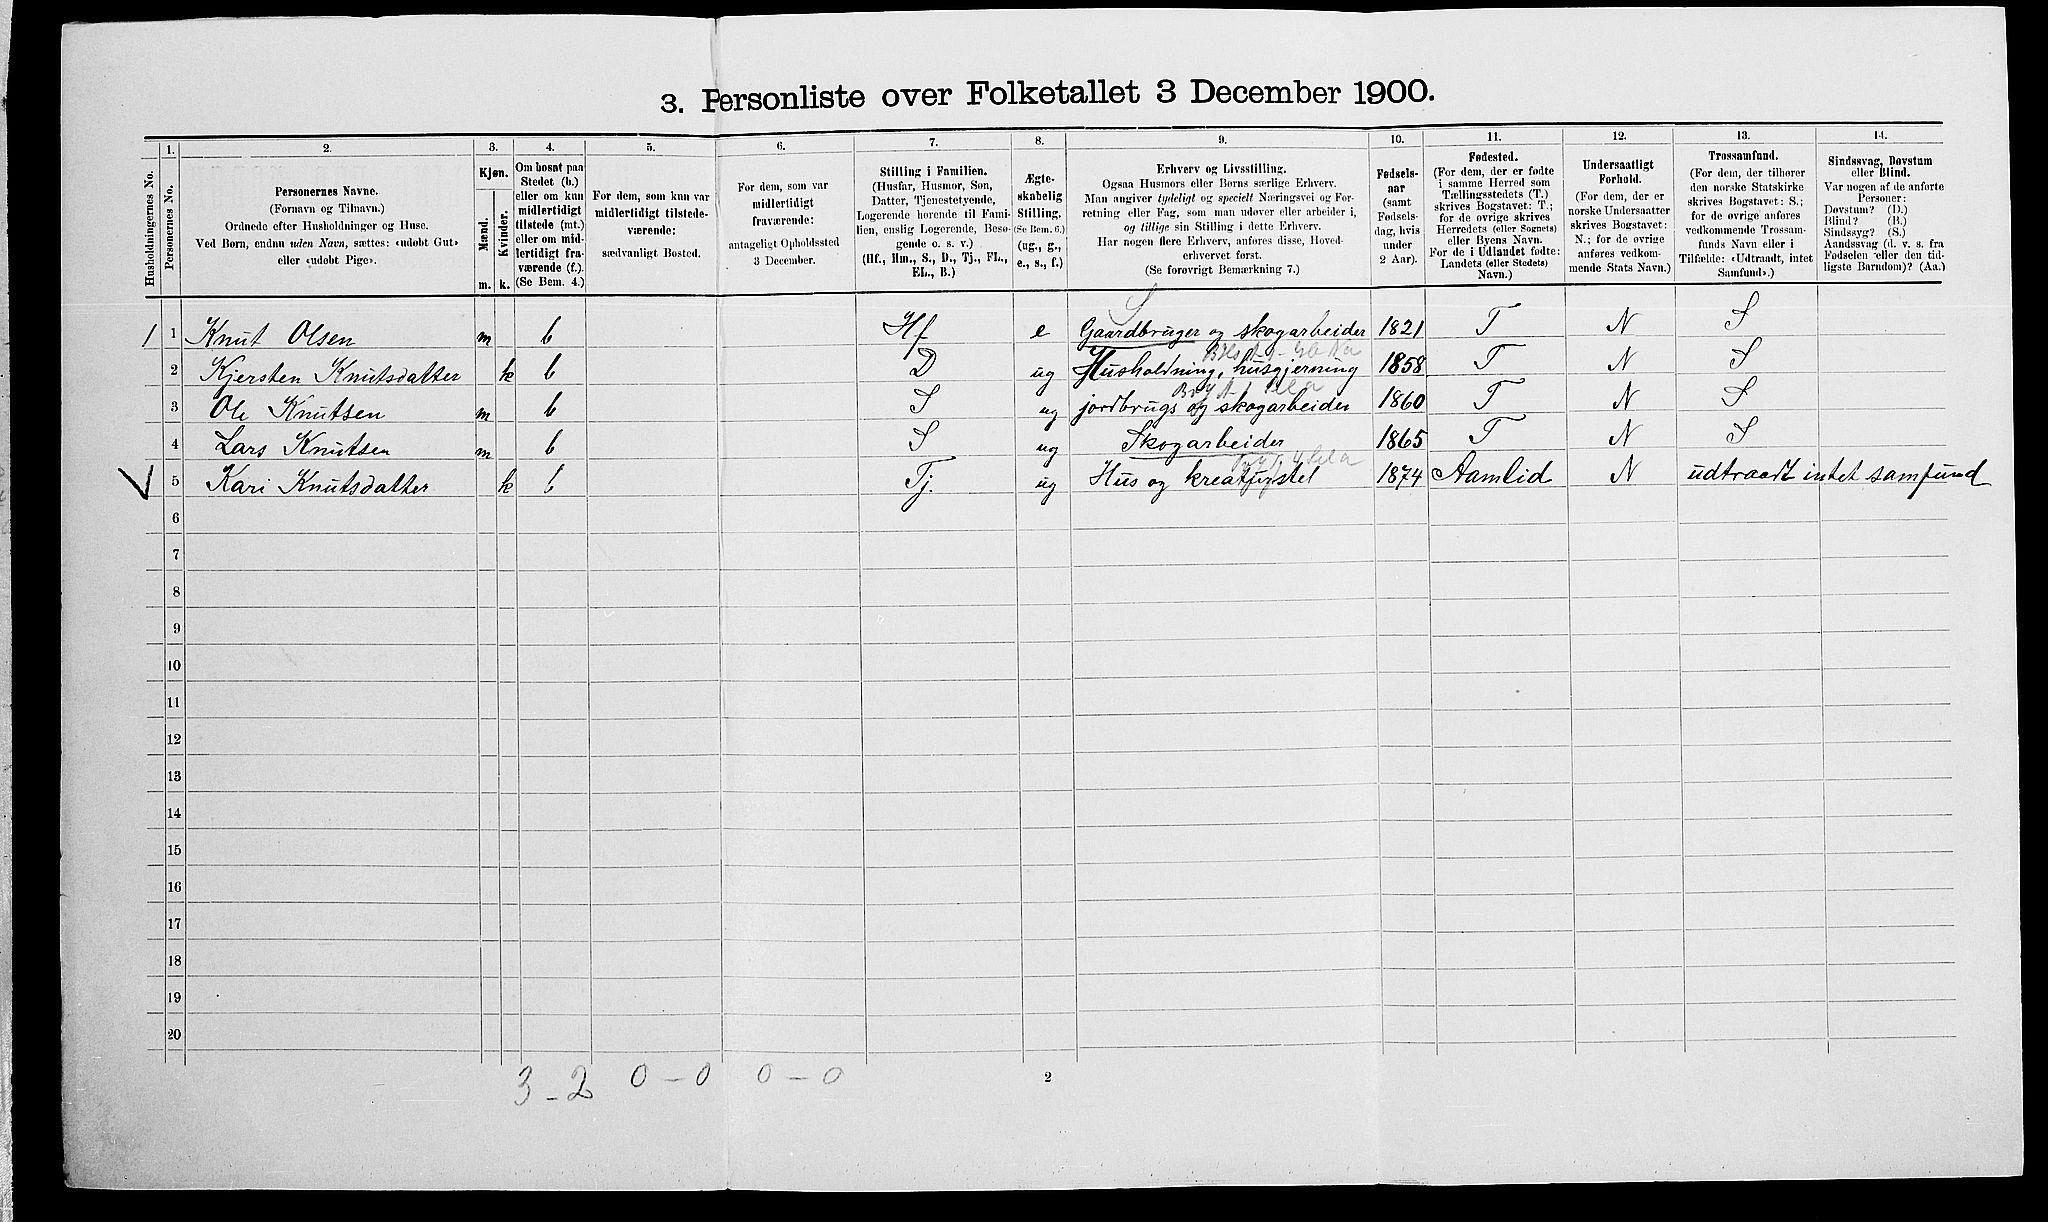 3. Personliste over Folketallet 3 December 1900.
Husholdningernes No.
1.
Personernes No.
2.
Personernes Navne.
(Fornavn og Tilnavn.)
Ordnede efter Husholdninger og Huse.
Ved Børn, endnu uden Navn, sættes: «udobt Gut»
eller «udobt Pige».
3.
Kjøn.
Mænd.
Kvinder.
m.
k.
4.
Om bosat paa
Stedet (b.)
eller om kun
midlertidigt
tilstede (mt.)
eller om mid-
lertidigt fra-
værende (f.).
(Se Bem. 4.)
5.
For dem, som kun var
midlertidigt tilstede-
værende:
sædvanligt Bosted.
6.
For dem, som var
midlertidigt
fraværende:
antageligt Opholdssted
3 December.
7.
Stilling i Familien.
(Husfar, Husmor, Søn,
Datter, Tjenestetyende,
Logerende hørende til Fami-
lien, enslig Logerende, Besø-
gende o. s. v.)
(Hf., Hm., S., D., Tj., FL.,
EL., B.)
8.
Ægte-
skabelig
Stilling.
(Se Bem. 6.)
(ug., g.,
e., s., f.)
9.
Erhverv og Livsstilling.
Ogsaa Husmors eller Børns særlige Erhverv.
Man angiver tydeligt og specielt Næringsvei og For-
retning eller Fag, som man udøver eller arbeider i,
og tillige sin Stilling i dette Erhverv.
Har nogen flere Erhverv, anføres disse, Hoved-
erhvervet først.
(Se forøvrigt Bemærkning 7.)
10.
Fødsels-
aar
(samt
Fødsels-
dag, hvis
under
2 Aar).
11.
Fødested.
(For dem, der er fødte
i samme Herred som
Tællingsstedets (T.)
skrives Bogstavet: T.;
for de øvrige skrives
Herredets (eller Sognets)
eller Byens Navn.
For de i Udlandet fødte:
Landets (eller Stedets)
Navn.)
12.
Undersaatligt
Forhold.
(For dem, der er
norske Undersaatter
skrives Bogstavet:
N.; for de øvrige
anføres vedkom-
mende Stats Navn.)
13.
Trossamfund.
(For dem, der tilhører
den norske Statskirke
skrives Bogstavet: S.;
for de øvrige anføres
vedkommende Trossam-
funds Navn eller i
Tilfælde: «Udtraadt, intet
Samfund».)
14.
Sindssvag, Døvstum
eller Blind.
Var nogen af de anførte
Personer:
Døvstum? (D.)
Blind? (B.)
Sindssyg? (S.)
Aandssvag (d. v. s. fra
Fødselen eller den tid-
ligste Barndom)? (Aa.)
S
1 1 Knut Olsen m b Hf e Gaardbruger og skogarbeider 1821 T N S
2 Kjersten Knutsdatter k b D ug Husholdning, husgjerning 1858 T N S
3 Ole Knutsen m b S ug jordbrugs og skogarbeider 1860 T N S
4 Lars Knutsen m b S ug Skogarbeider 1865 T N S
5 Kari Knutsdatter k b Tj. ug Hus og kreaturstel 1874 Aamlid N udtraadt intet samfund
6
7
8
9
10
11
12
13
14
15
16
17
18
19
20
3 - 2 0 - 0 0 - 0
2